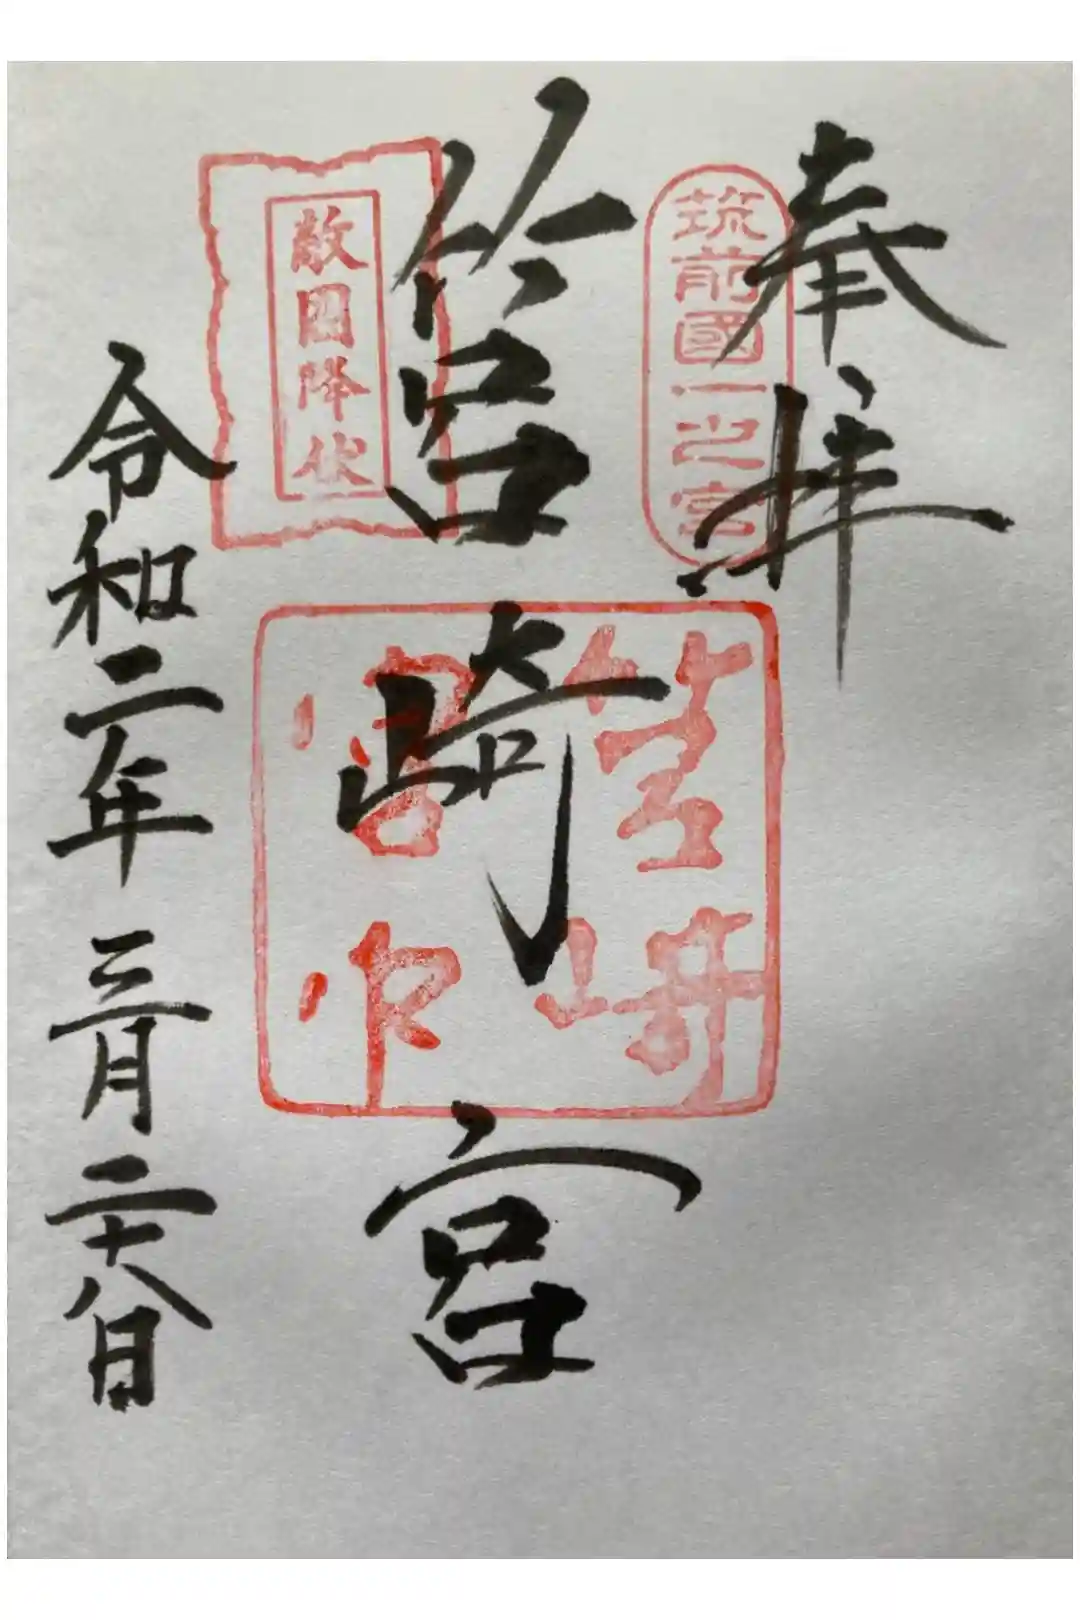 奉拝
筑前國一之宮
筥崎宮
敵国降伏
筥崎宮印
令和二年三月二十八日